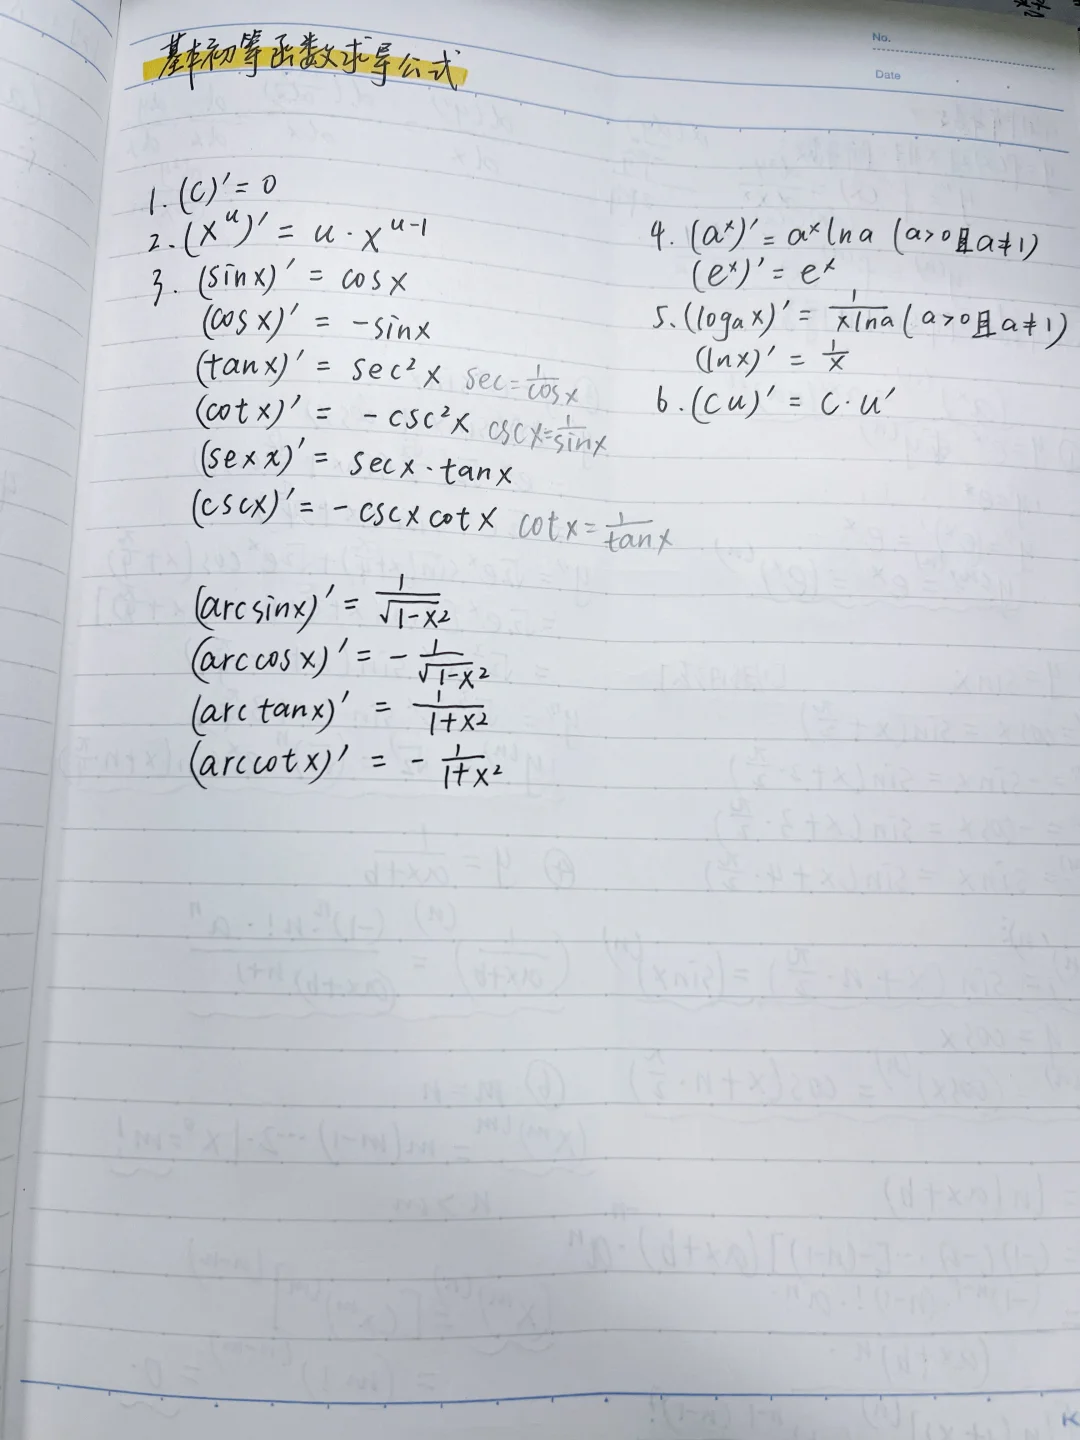 基本初等函数求导公式
No.
Date
1. (C)' = 0
2. (x^u)' = u · x^{u-1}
3. (sinx)' = cosx
(cosx)' = -sinx
(tanx)' = sec²x sec = 1/cosx
(cotx)' = -csc²x cscx = 1/sinx
(sexx)' = secx · tanx
(cscx)' = -cscxcotx cotx = 1/tanx
(arcsinx)' = 1/√(1-x²)
(arccosx)' = -1/√(1-x²)
(arctanx)' = 1/(1+x²)
(arccotx)' = -1/(1+x²)
4. (a^x)' = a^x lna (a>0且a≠1)
(e^x)' = e^x
5. (log_a x)' = 1/(xlna) (a>0且a≠1)
(lnx)' = 1/x
6. (Cu)' = C·u'